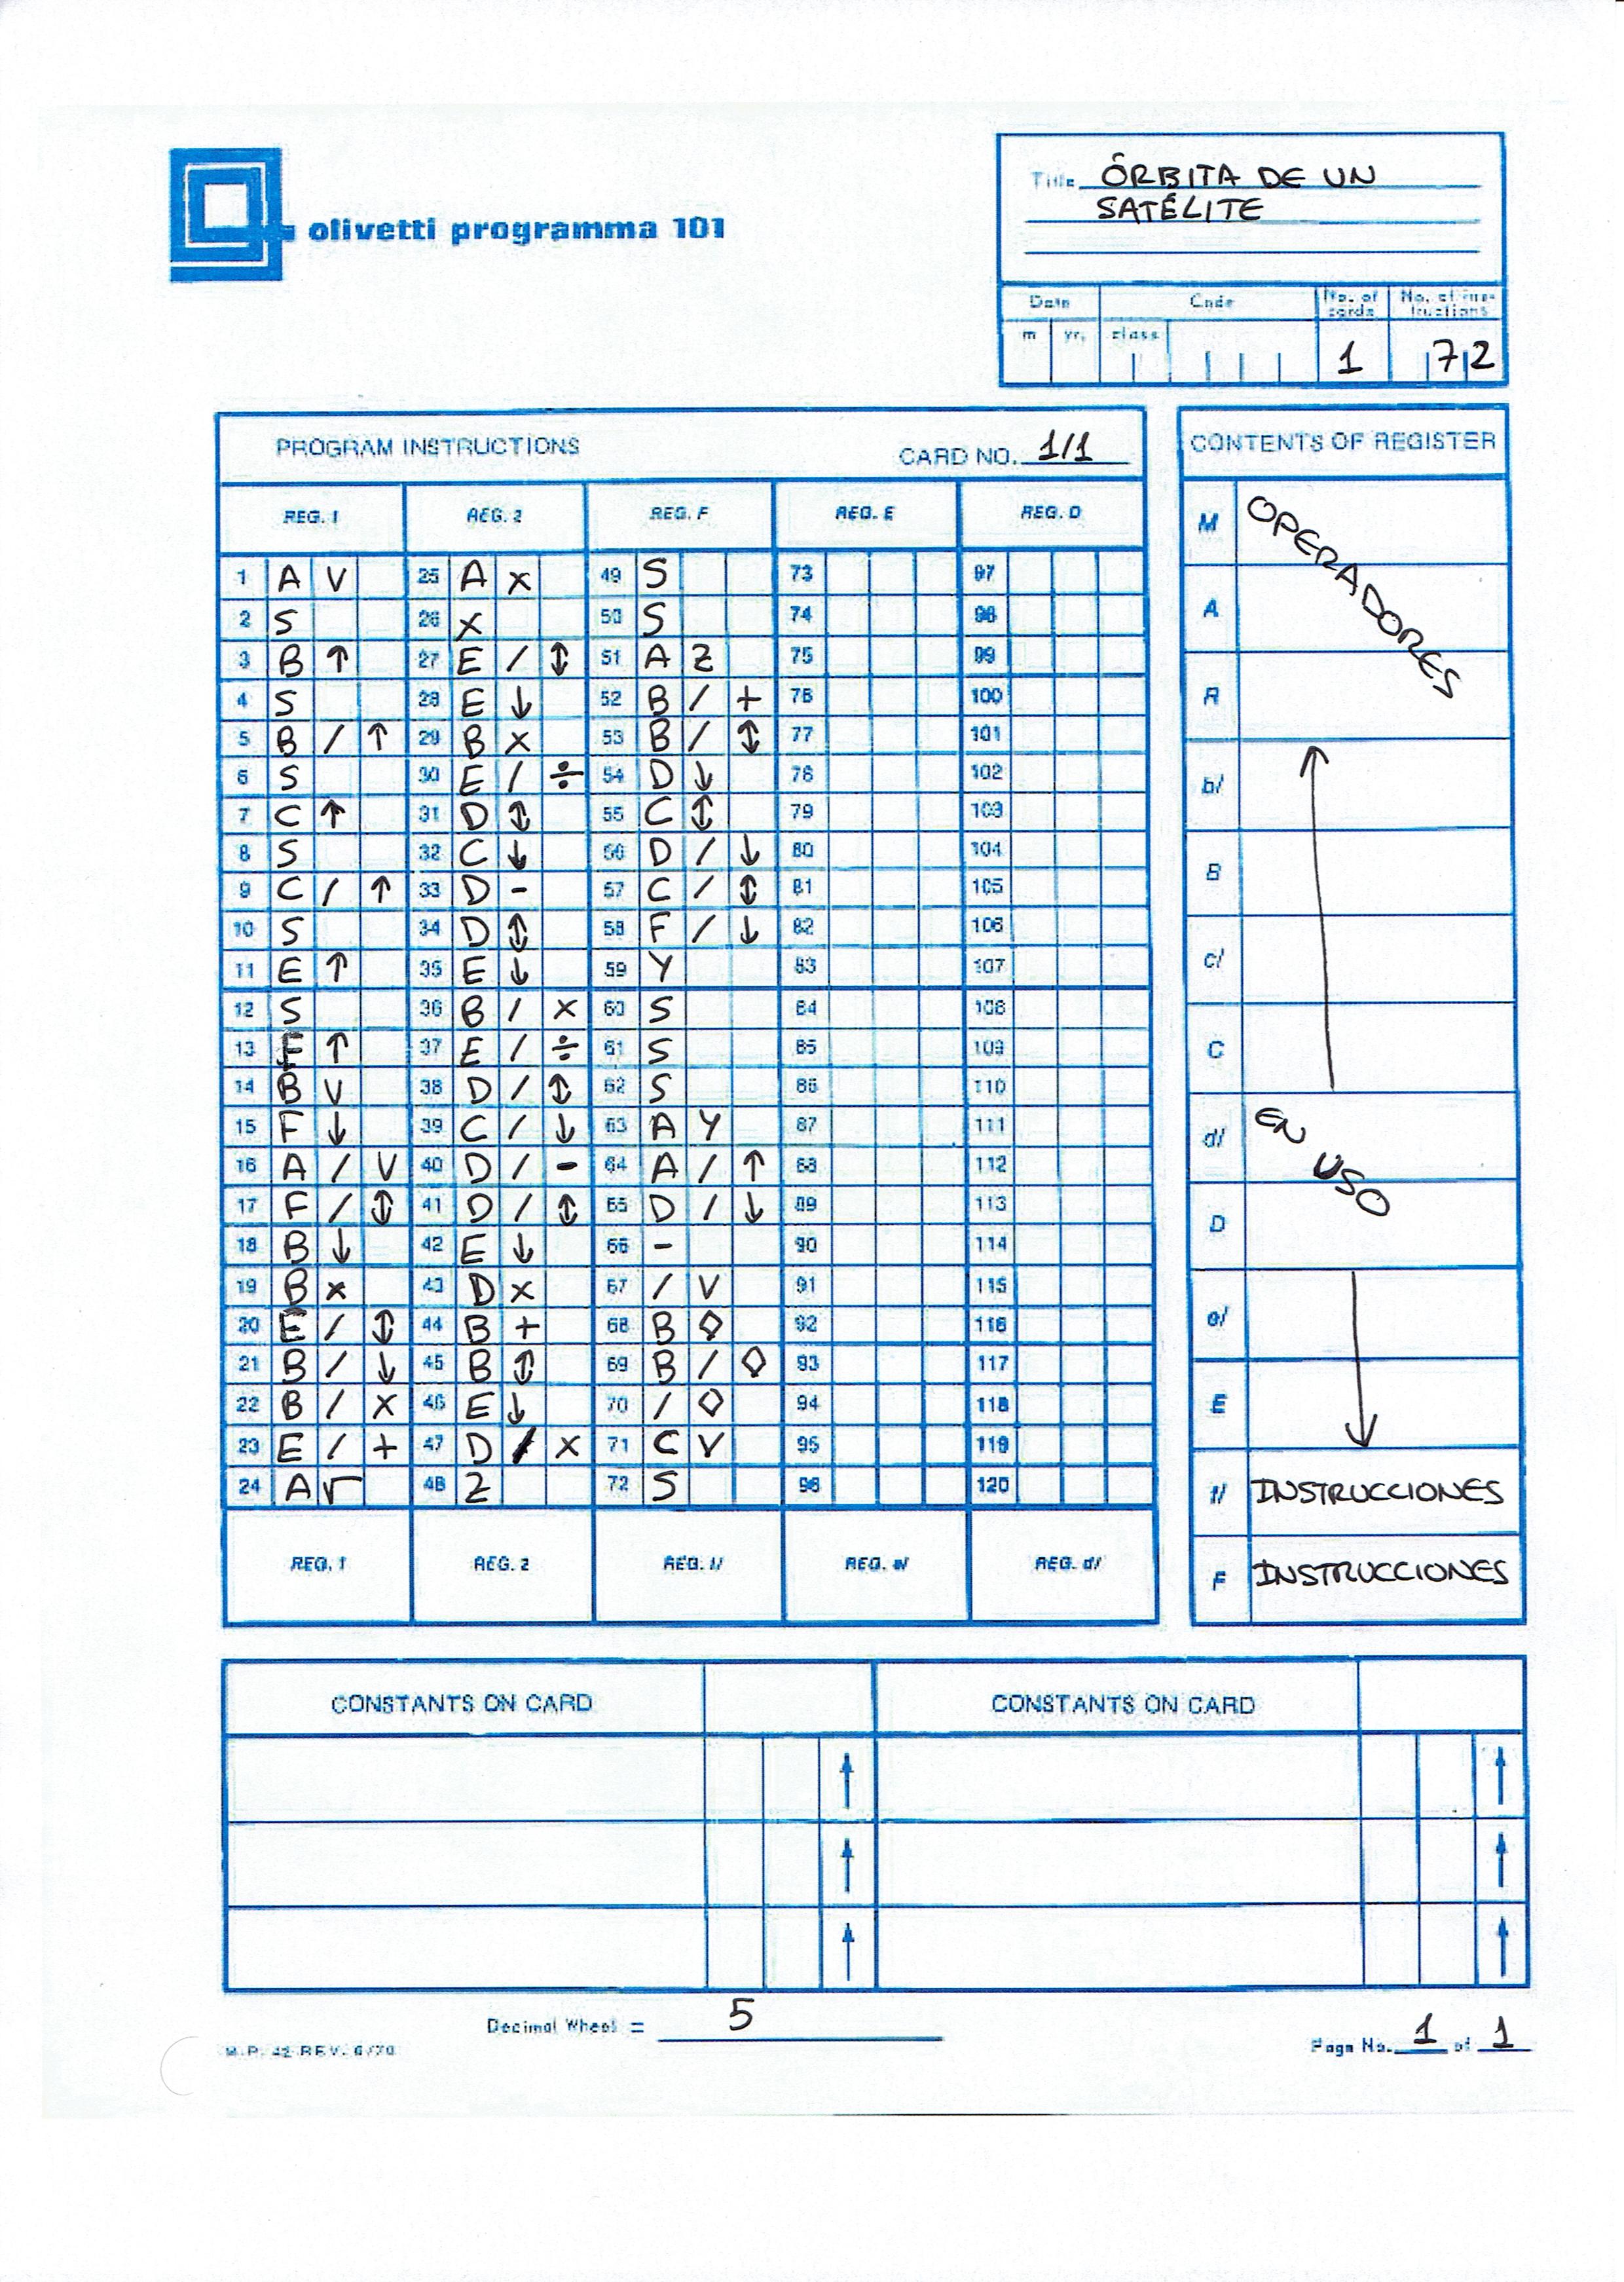 olivetti programma 101
Title ÓRBITA DE UN
SATÉLITE
Date Code No. of cards No. of instructions
m yr. class 1 72
PROGRAM INSTRUCTIONS CARD NO. 1/1
REG. 1 REG. 2 REG. F REG. E REG. D
1 A V 25 A x 49 S 73 97
2 S 26 x 50 S 74 98
3 B ↑ 27 E / ↕ 51 A Z 75 99
4 S 28 E ↓ 52 B / + 76 100
5 B / ↑ 29 B x 53 B / ↕ 77 101
6 S 30 E / ÷ 54 D ↓ 78 102
7 C ↑ 31 D ↕ 55 C ↕ 79 103
8 S 32 C ↓ 56 D / ↓ 80 104
9 C / ↑ 33 D - 57 C / ↕ 81 105
10 S 34 D ↕ 58 F / ↓ 82 106
11 E ↑ 35 E ↓ 59 Y 83 107
12 S 36 B / x 60 S 84 108
13 F ↑ 37 E / ÷ 61 S 85 109
14 B V 38 D / ↕ 62 S 86 110
15 F ↓ 39 C / ↓ 63 A Y 87 111
16 A / V 40 D / - 64 A / ↑ 88 112
17 F / ↕ 41 D / ↕ 65 D / ↓ 89 113
18 B ↓ 42 E ↓ 66 - 90 114
19 B x 43 D x 67 / V 91 115
20 E / ↕ 44 B + 68 B ◊ 92 116
21 B / ↓ 45 B ↕ 69 B / ◊ 93 117
22 B / x 46 E ↓ 70 / ◊ 94 118
23 E / + 47 D / x 71 C V 95 119
24 A √ 48 Z 72 S 96 120
REG. 1 REG. 2 REG. f/ REG. e/ REG. d/
CONTENTS OF REGISTER
M OPERADORES
A
R
b/
B
c/
C
d/ EN USO
D
e/
E
f/ INSTRUCCIONES
F INSTRUCCIONES
CONSTANTS ON CARD CONSTANTS ON CARD
↑ ↑
↑ ↑
↑ ↑
Decimal Wheel = 5
M.P. 42 REV. 6/70
Page No. 1 of 1